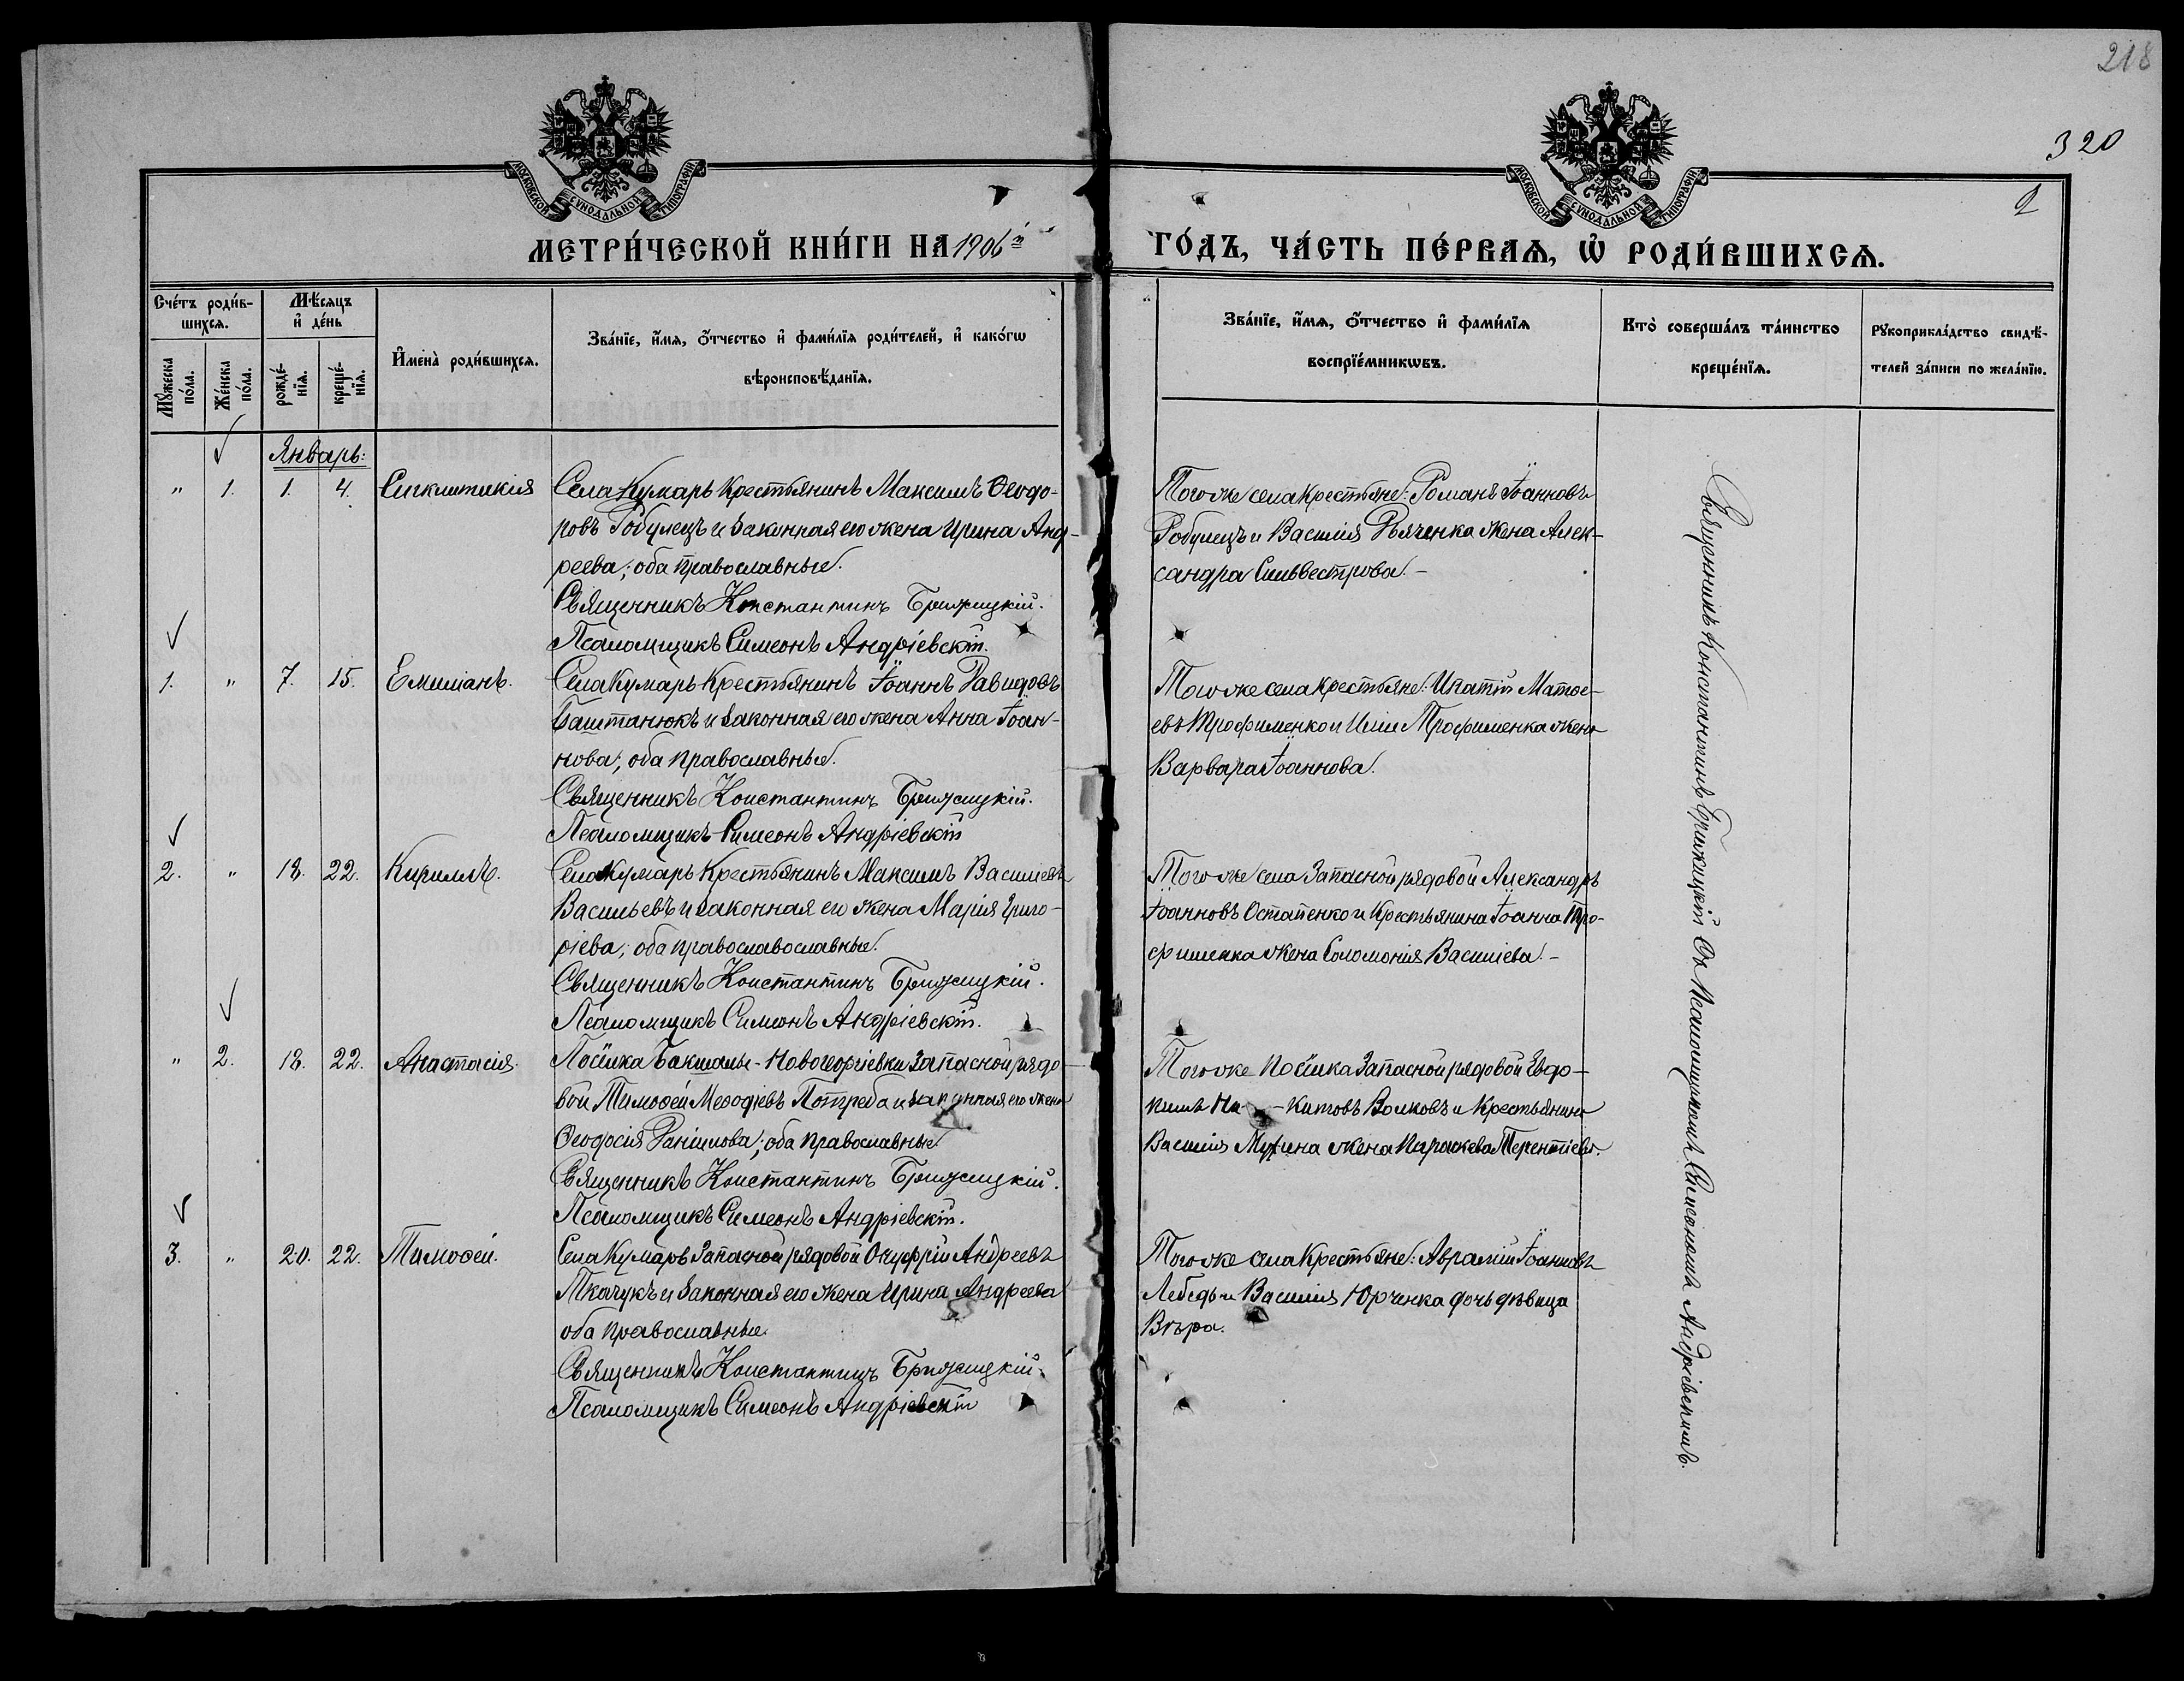 218
320
2
МОСКОВСКОЙ СѴНОДАЛЬНОЙ ТИПОГРАФІИ
МОСКОВСКОЙ СѴНОДАЛЬНОЙ ТИПОГРАФІИ
МЕТРИ́ЧЕСКОЙ КНИ́ГИ НА 1906й
ГО́ДЪ, ЧА́СТЬ ПЕ́РВАѦ, Ѡ҆ РОДИ́ВШИХСѦ.
Сче́тъ роди́в-
шихсѧ.
Мꙋ́жеска по́ла.
Же́нска по́ла.
Мѣ́сѧцъ
и҆ де́нь
рожде́-
нїѧ.
креще́-
нїѧ.
И҆мена̀ роди́вшихсѧ.
Зва́нїе, и҆́мѧ, ѻ҆́тчество и҆ фами́лїѧ роди́телей, и҆ како́гѡ
вѣроисповѣ́данїѧ.
Зва́нїе, и҆́мѧ, ѻ҆́тчество и҆ фами́лїѧ
воспрїе́мникѡвъ.
Кто̀ соверша́лъ та́инство
креще́нїѧ.
Рꙋкоприкла́дство свидѣ́-
телей за́писи по жела́нїю.
Январь:
" 1. 1. 4. Сигклитикія
Села Кумарь Крестьянинъ Максимъ Ѳеодо-
ровъ Робулецъ и законная его жена Ирина Анд-
реева; оба православные.
Священникъ Константинъ Брижицкій.
Псаломщикъ Симеонъ Андріевскій.
Того же села Крестьяне: Романъ Іоанновъ
Робулецъ и Василія Дьяченка жена Алек-
сандра Сильвестрова.-
1. " 7. 15. Емиліанъ.
Села Кумарь Крестьянинъ Іоаннъ Давидовъ
Баштанюкъ и законная его жена Анна Іоан-
нова; оба православные.
Священникъ Константинъ Брижицкій.
Псаломщикъ Симеонъ Андріевскій
Того же села Крестьяне: Ипатій Матѳе-
евъ Трофименко и Иліи Трофименка жена
Варвара Іоаннова.
2. " 18. 22. Кириллъ.
Села Кумарь Крестьянинъ Максимъ Василіевъ
Васильевъ и законная его жена Марія Григо-
ріева; оба православославные.
Священникъ Константинъ Брижицкій.
Псаломщикъ Симеонъ Андріевскій.
Того же села Запасной рядовой Александръ
Іоанновъ Остапенко и Крестьянина Іоанна Тро-
фименка жена Соломонія Василіева.-
" 2. 18. 22. Анастасія.
Посёлка Бакшалы-Новогеоргіевки Запасной рядо-
вой Тимоѳей Меѳодіевъ Потреба и законная его жена
Ѳеодосія Даніилова; оба православные
Священникъ Константинъ Брижицкій.
Псаломщикъ Симеонъ Андріевскій.
Того же посёлка Запасной рядовой Евдо-
кимъ Ни-китовъ Волковъ и Крестьянина
Василія жена Параскева Терентіева.
3. " 20. 22. Тимоѳей.
Села Кумарь Запасной рядовой Онуфрій Андреевъ
Ткачукъ и законная его жена Ирина Андреева
оба православные.
Священникъ Константинъ Брижицкій.
Псаломщикъ Симеонъ Андріевскій
Того же села Крестьяне: Аврамій Іоанновъ
Лебедь и Василія Юрченка дочь дѣвица
Вѣра.
Священникъ Константинъ Брижицкій съ Псаломщикомъ Симеономъ Андріевскимъ.